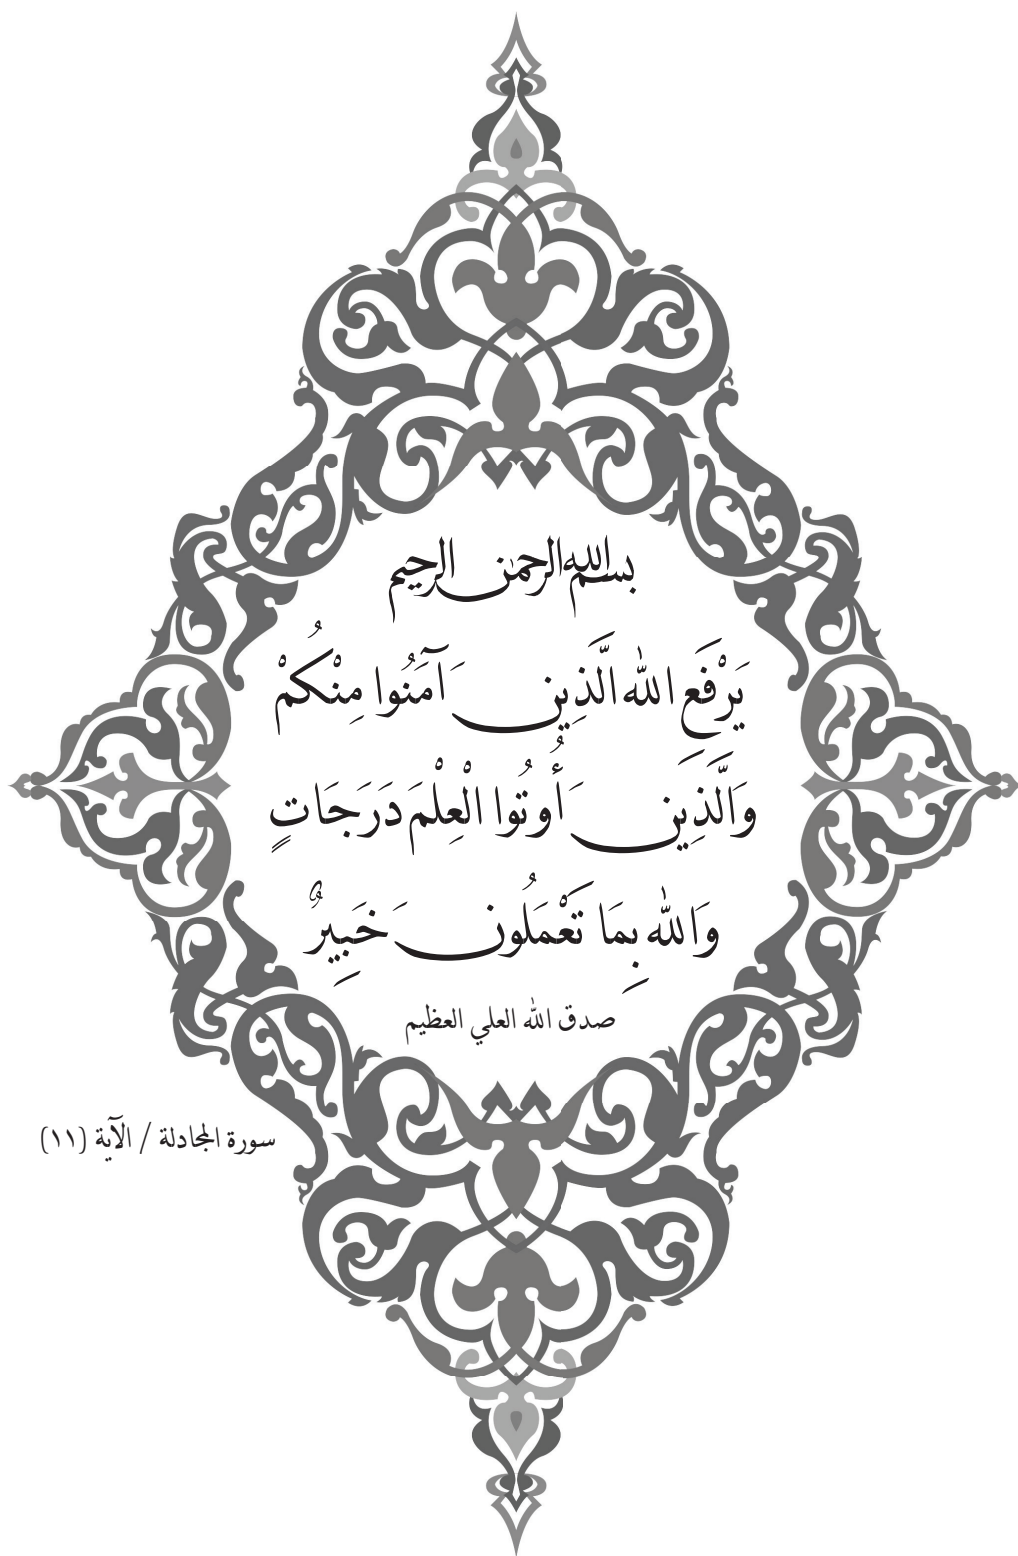 بسم الله الرحمن الرحيم
يَرْفَعِ الله الَّذِينَ آمَنُوا مِنْكُمْ
وَالَّذِينَ أُوتُوا الْعِلْمَ دَرَجَاتٍ
وَالله بِمَا تَعْمَلُونَ خَبِيرٌ
صدق الله العلي العظيم
سورة المجادلة / الآية (١١)